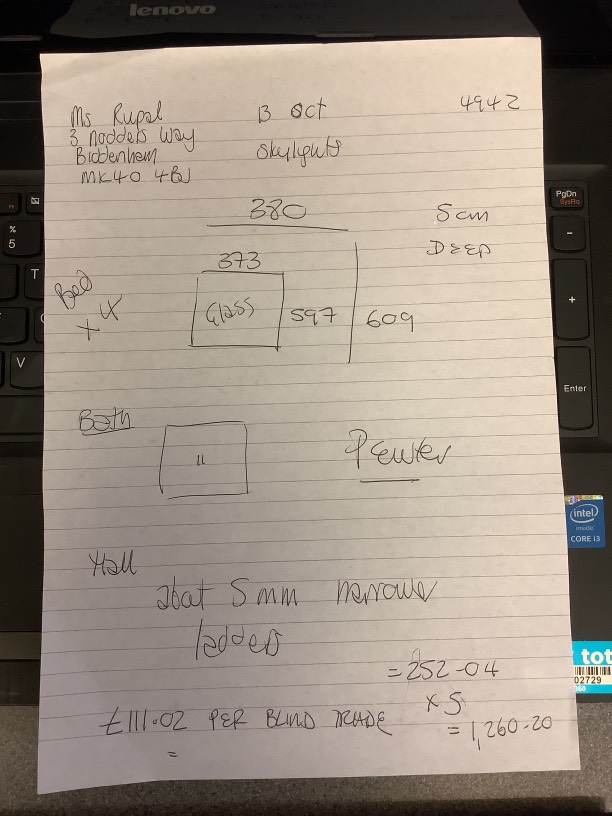 lenovo
Ms Rupal 13 Oct 4942
3 Nodders Way
Biddenham Skylights
MK40 4BJ
380 5 cm
DEEP
373
Bed Glass 597 609
x 4
Bath
" Pewter
Hall
abat 5mm narrower
ladders
= 252-04
x 5
£111.02 PER BLIND TRADE = 1,260.20
=
PgDn
SysRq
%
5
-
T
+
V
Enter
intel
inside
CORE i3
tot
02729